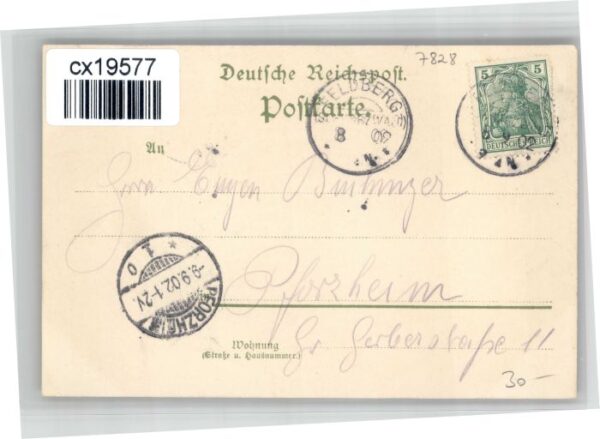 cx19577
7828
Deutsche Reichspost.
Postkarte.
FELDBERG
8 02
5 5
DEUTSCHES REICH
02
An
Herrn Eugen
Pforzheim
1 0
-9.9.02.1-2V
PFORZHEIM
Wohnung
(Straße u. Hausnummer)
Gr Gerberstraße 11
30-